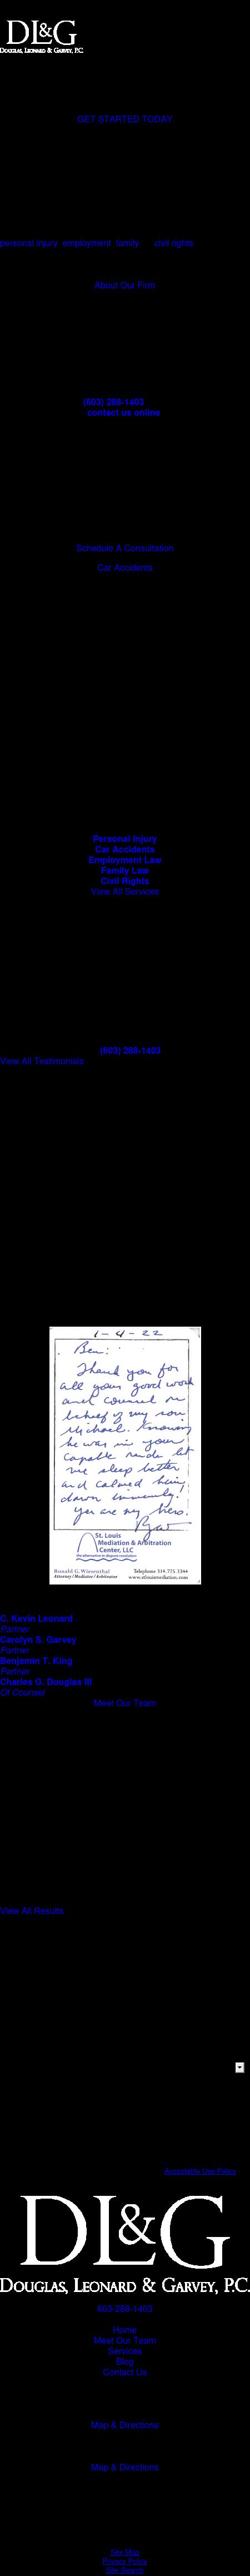 DL&G
DOUGLAS, LEONARD & GARVEY, P.C.
GET STARTED TODAY
personal injury employment family civil rights
About Our Firm
(603) 288-1403
contact us online
Schedule A Consultation
Car Accidents
Personal Injury
Car Accidents
Employment Law
Family Law
Civil Rights
View All Services
(603) 288-1403
View All Testimonials
1-4-22
Ben:
Thank you for
all your good work
and counsel on
behalf of my son
Michael. Knowing
he was in your
capable hands let
me sleep better
and calmed him
down immensely!
You are my hero.
St. Louis
Mediation & Arbitration
Center, LLC
the alternative in dispute resolution
Ronald G. Wiesenthal
Attorney / Mediator / Arbitrator
Telephone 314.775.3344
www.stlouismediation.com
C. Kevin Leonard
Partner
Carolyn S. Garvey
Partner
Benjamin T. King
Partner
Charles G. Douglas III
Of Counsel
Meet Our Team
View All Results
Acceptable Use Policy
DL&G
DOUGLAS, LEONARD & GARVEY, P.C.
603-288-1403
Home
Meet Our Team
Services
Blog
Contact Us
Map & Directions
Map & Directions
Site Map
Privacy Policy
Site Search